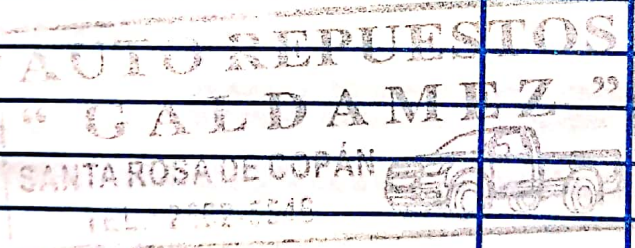 AUTO REPUESTOS
“GALDAMEZ”
SANTA ROSA DE COPÁN
TEL.